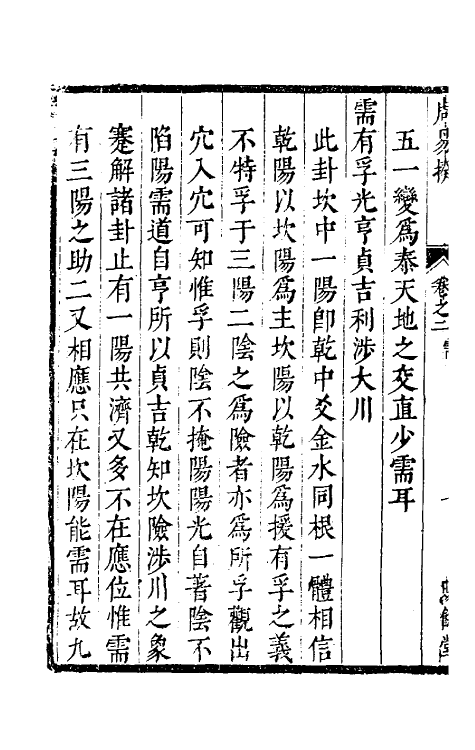 周易揆
卷之二 需
五一變爲泰天地之交直少需耳
需有孚光亨貞吉利涉大川
此卦坎中一陽卽乾中爻金水同根一體相信
乾陽以坎陽爲主坎陽以乾陽爲援有孚之義
不特孚于三陽二陰之爲險者亦爲所孚觀出
穴入穴可知惟孚則陰不掩陽陽光自著陰不
陷陽需道自亨所以貞吉乾知坎險涉川之象
蹇解諸卦止有一陽共濟又多不在應位惟需
有三陽之助二又相應只在坎陽能需耳故九